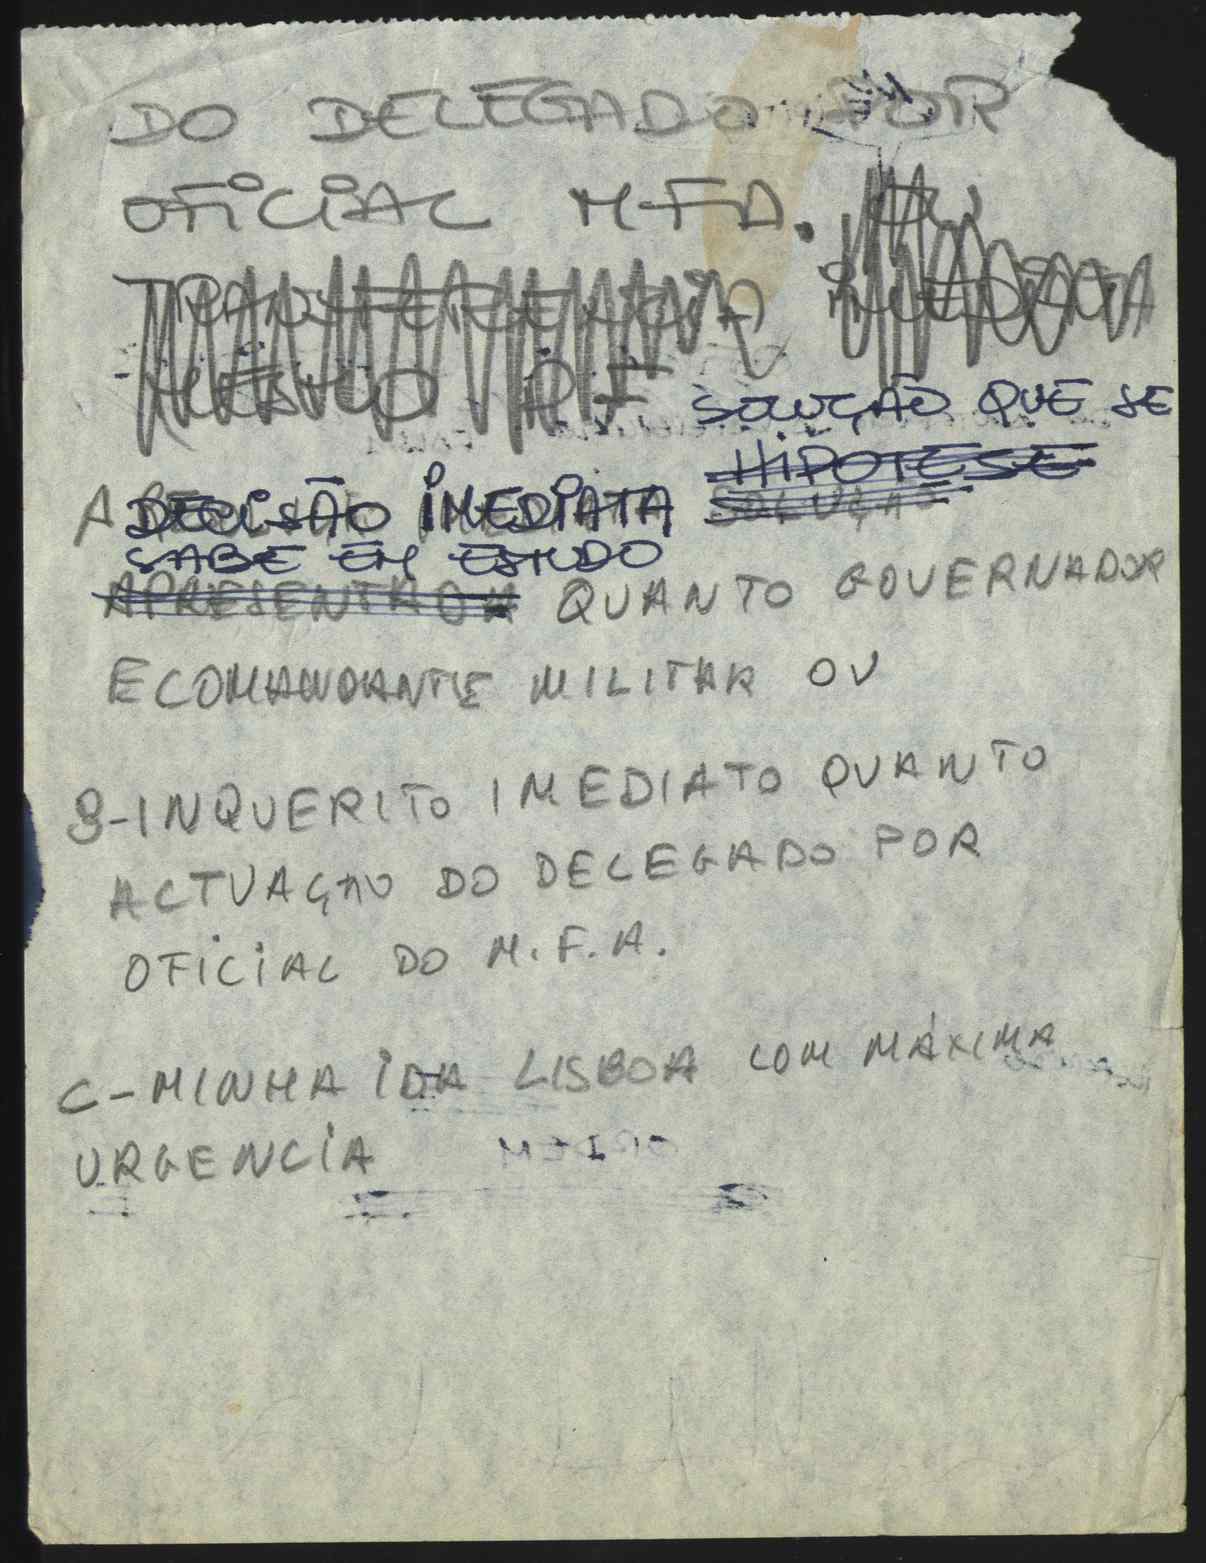 DO DELEGADO POR
OFICIAL M.F.A. OU
IMEDIATA
SOLUÇÃO QUE SE
HIPOTESE
A DECISÃO IMEDIATA SOLUÇÃO
SABE EM ESTUDO
APRESENTADA QUANTO GOVERNADOR
E COMANDANTE MILITAR OU
B-INQUERITO IMEDIATO QUANTO
ACTUAÇÃO DO DELEGADO POR
OFICIAL DO M.F.A.
C-MINHA IDA LISBOA COM MÁXIMA
URGENCIA